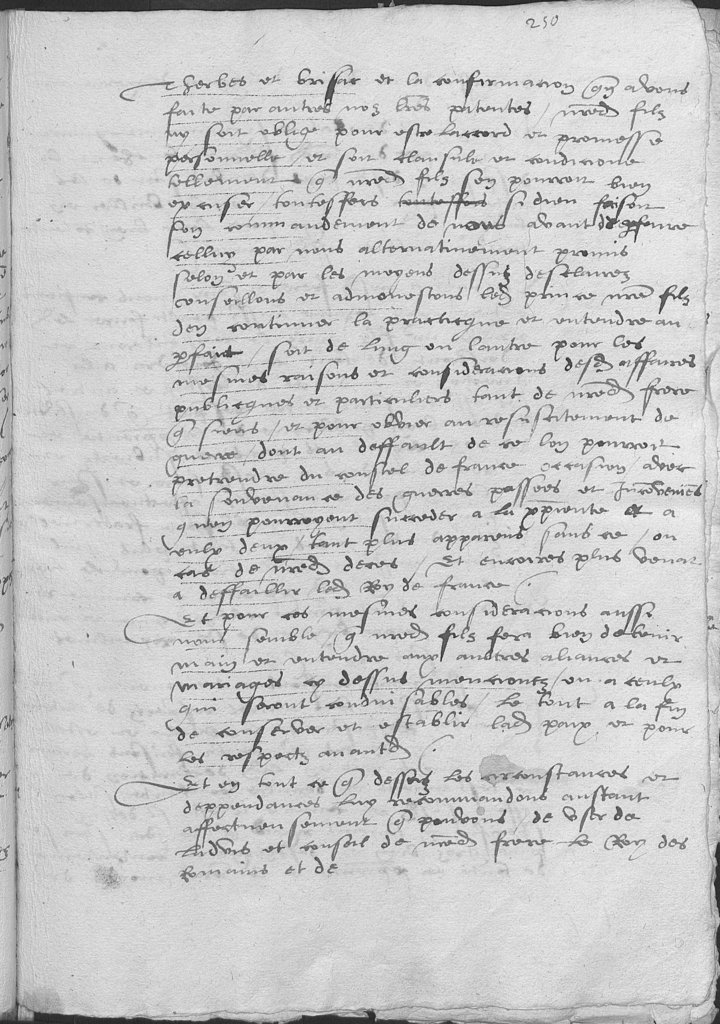 250
Therbes et brissac et la confirmacion q̃ en avons
faite par autres noz lr̃es patentes / nr̃ed filz
ny soit oblige pour estre laccord et promesse
personnelle / et soit clausule et condicione
tellement q̃ nr̃ed filz sen pourroit bien
excuser, toutesfois toutesfois si dieu faisoit
son commandement de nous avant de p̃faire
celluy par nous alternativement promis
selon et par les moyens dessus declairez
conseillons et admonestons led prince nr̃e filz
den continuer la practicque et entendre au
p̃fait / soit de lung ou lautre pour les
mesmes raisons et consideracions desd affaires
publicques et particuliers tant de nr̃ed frere
q̃ siens / et pour obvier au resuscitement de
guerre, dont au deffault de ce lon pourroit
pretendre du coustel de france occasion / avec
la souvenance des guerres passees et Inconveniens
quen pourroyent succeder a la xp̃iente et a
eulx deux / tant plus apparens sans ce / ou
cas de nr̃ed deces / Et encoires plus venant
a deffaillir led Roy de france /
Et pour ces mesmes consideracions aussi
nous semble q̃ nr̃ed filz fera bien de tenir
main et entendre aux autres aliances et
mariages cy dessus mencionez / ou a ceulx
qui seront conduisables / le tout a la fin
de conserver et establir lad paix et pour
les respectz avantd /
Et en tout ce q̃ dessus les circonstances et
deppendances luy recommandons autant
affectueusement q̃ pouvons / de user de
ladvis et conseil de nr̃ed frere le Roy des
Romains et de